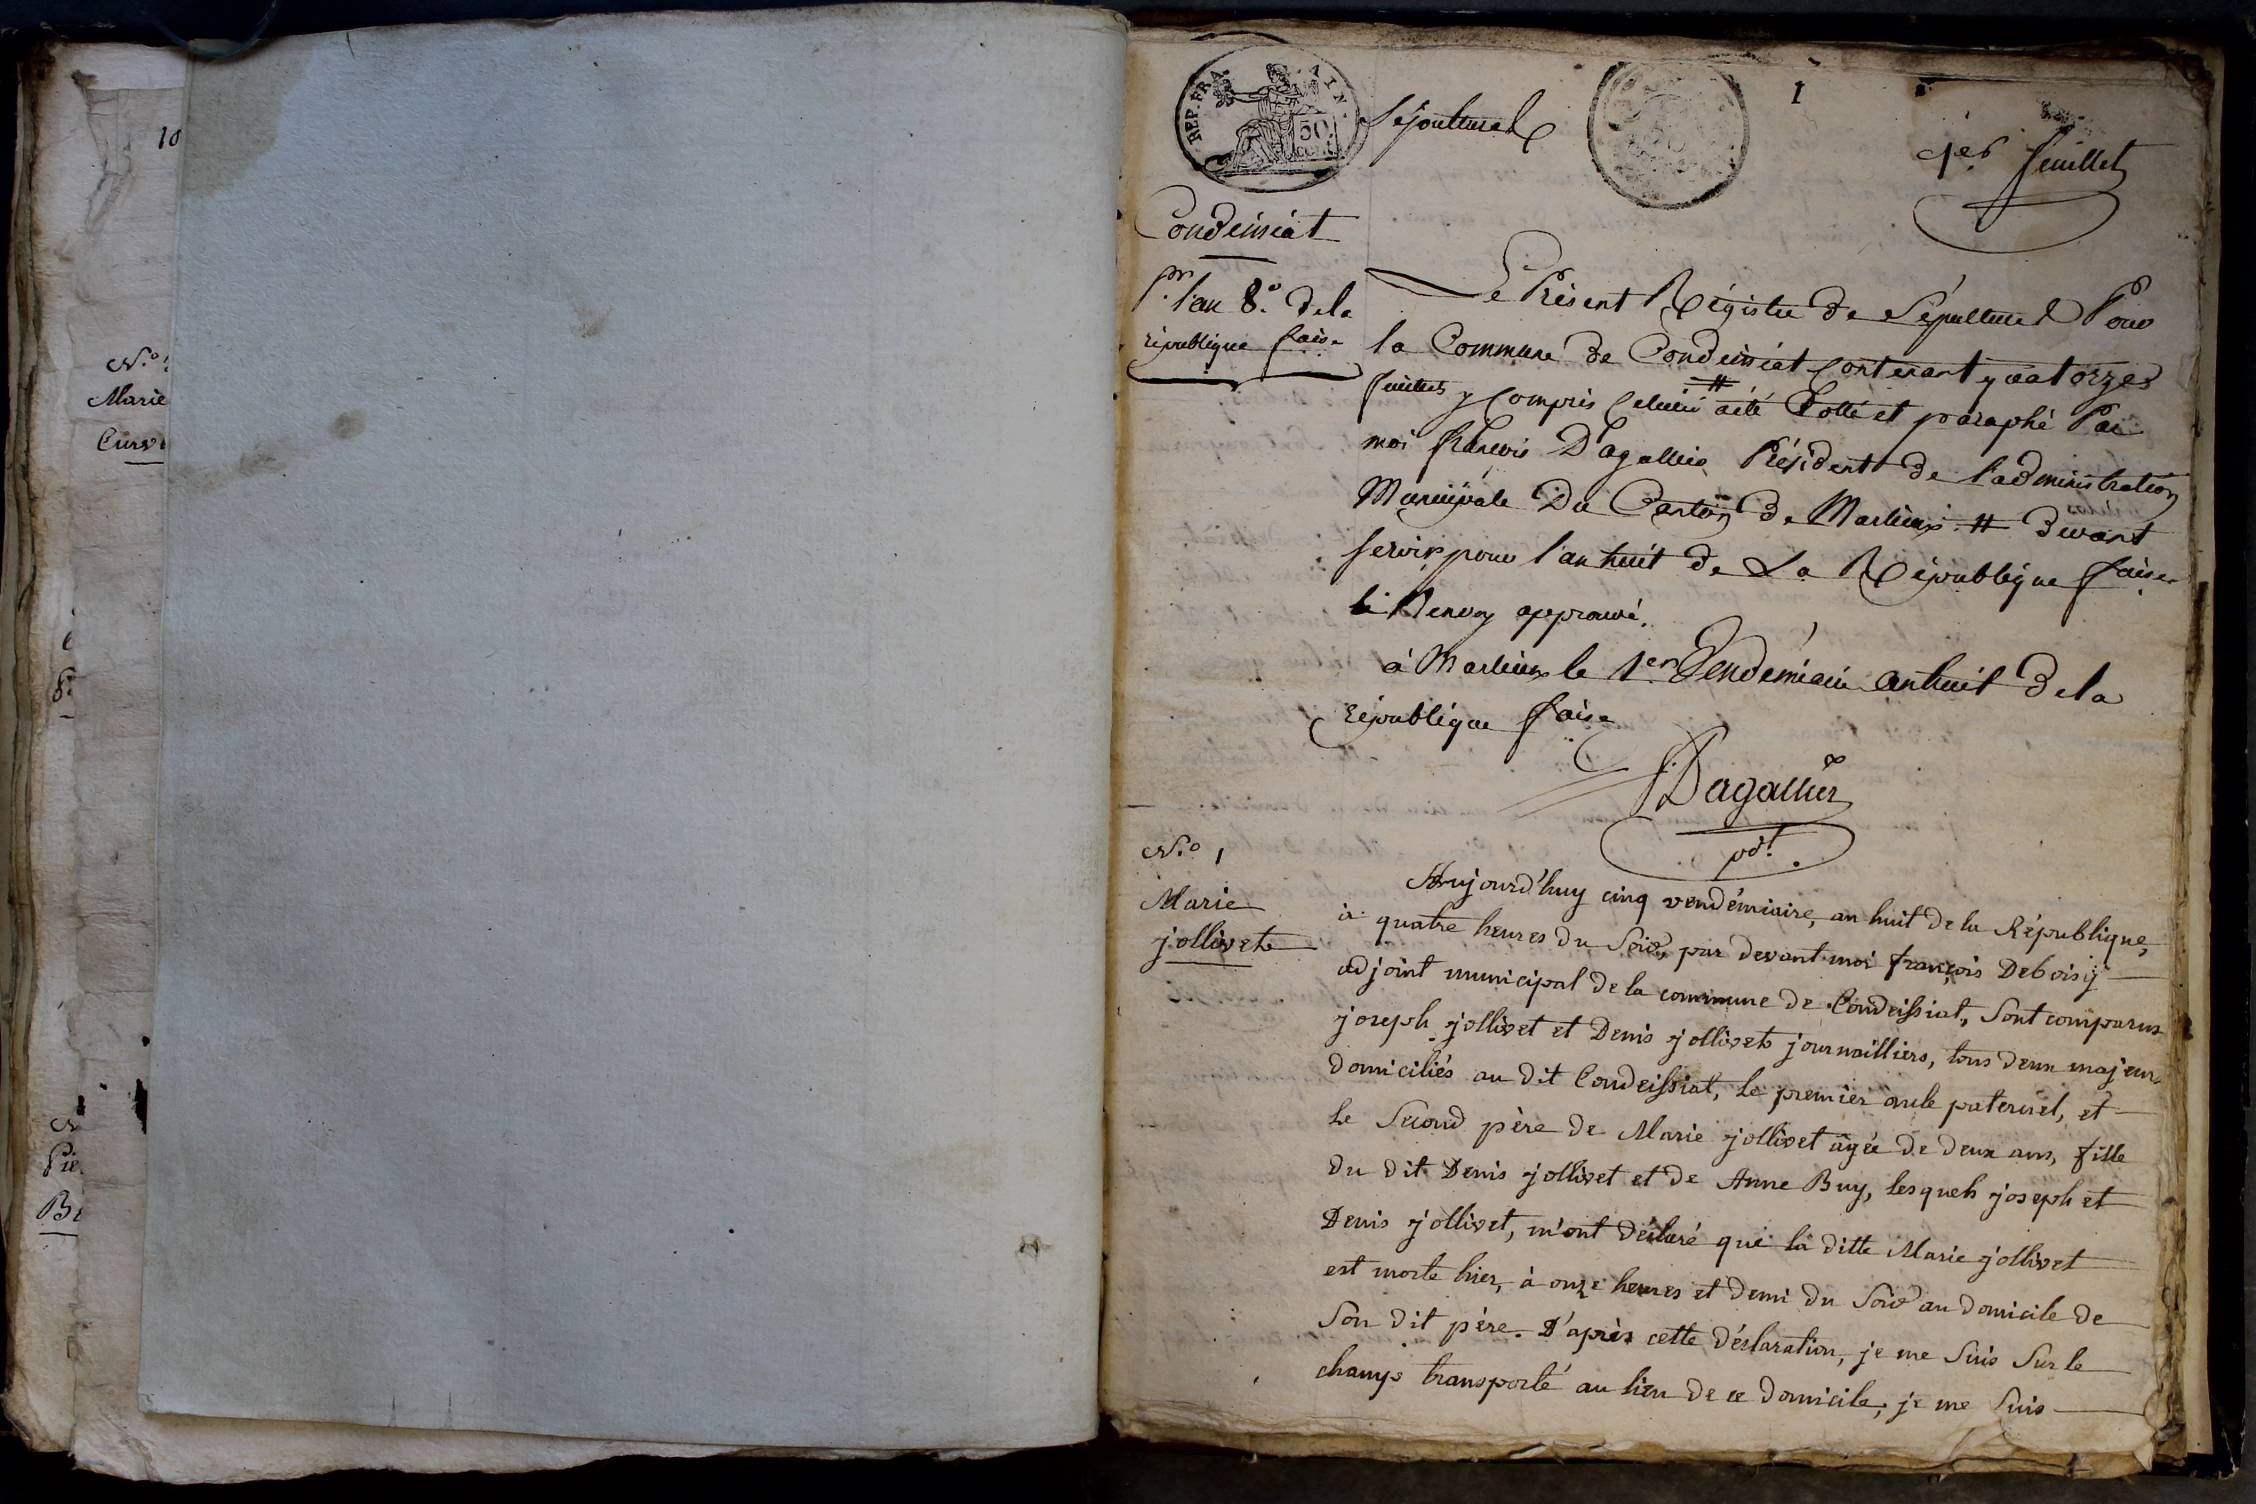 10
N.o
Marie
Curv
Pie
Be
REP. FRA AIN.
50
CEN
Sépultures
1
1er feuillet
Condeissiat
pr l'an 8.e de la
république fçaise
Le Présent Régistre de Sépultures Pour
la Commune de Condeissiat Contenant quatorzes
feuillets y Compris Celuici # a été Cotté et paraphé Par
moi françois Dagallier Président de l'administration
Municipale Du Canton de Marlieux # devant
servir pour l'an huit de La République fçaise
le Renvoy approuvé.
à Marlieux le 1er Vendémiaire an huit de la
république fçaise
Dagallier
pdt.
N.o 1
Marie
jollivet
Aujourd'huy cinq vendémiaire, an huit de la République,
à quatre heures du Soir, par devant moi françois Deboisy
adjoint municipal de la commune de Condeissiat, Sont comparus
joseph jollivet et Denis jollivet journailliers, tous deux majeurs
domiciliés au dit Condeissiat, le premier oncle paternel, et
le Second père de Marie jollivet âgée de deux ans, fille
du dit Denis jollivet et de Anne Buy, lesquels joseph et
Denis jollivet, m'ont déclaré que la ditte Marie jollivet
est morte hier, à onze heures et demi du Soir au domicile de
Son dit père. D'après cette déclaration, je me Suis Sur le
champs transporté au lieu de ce domicile, je me Suis